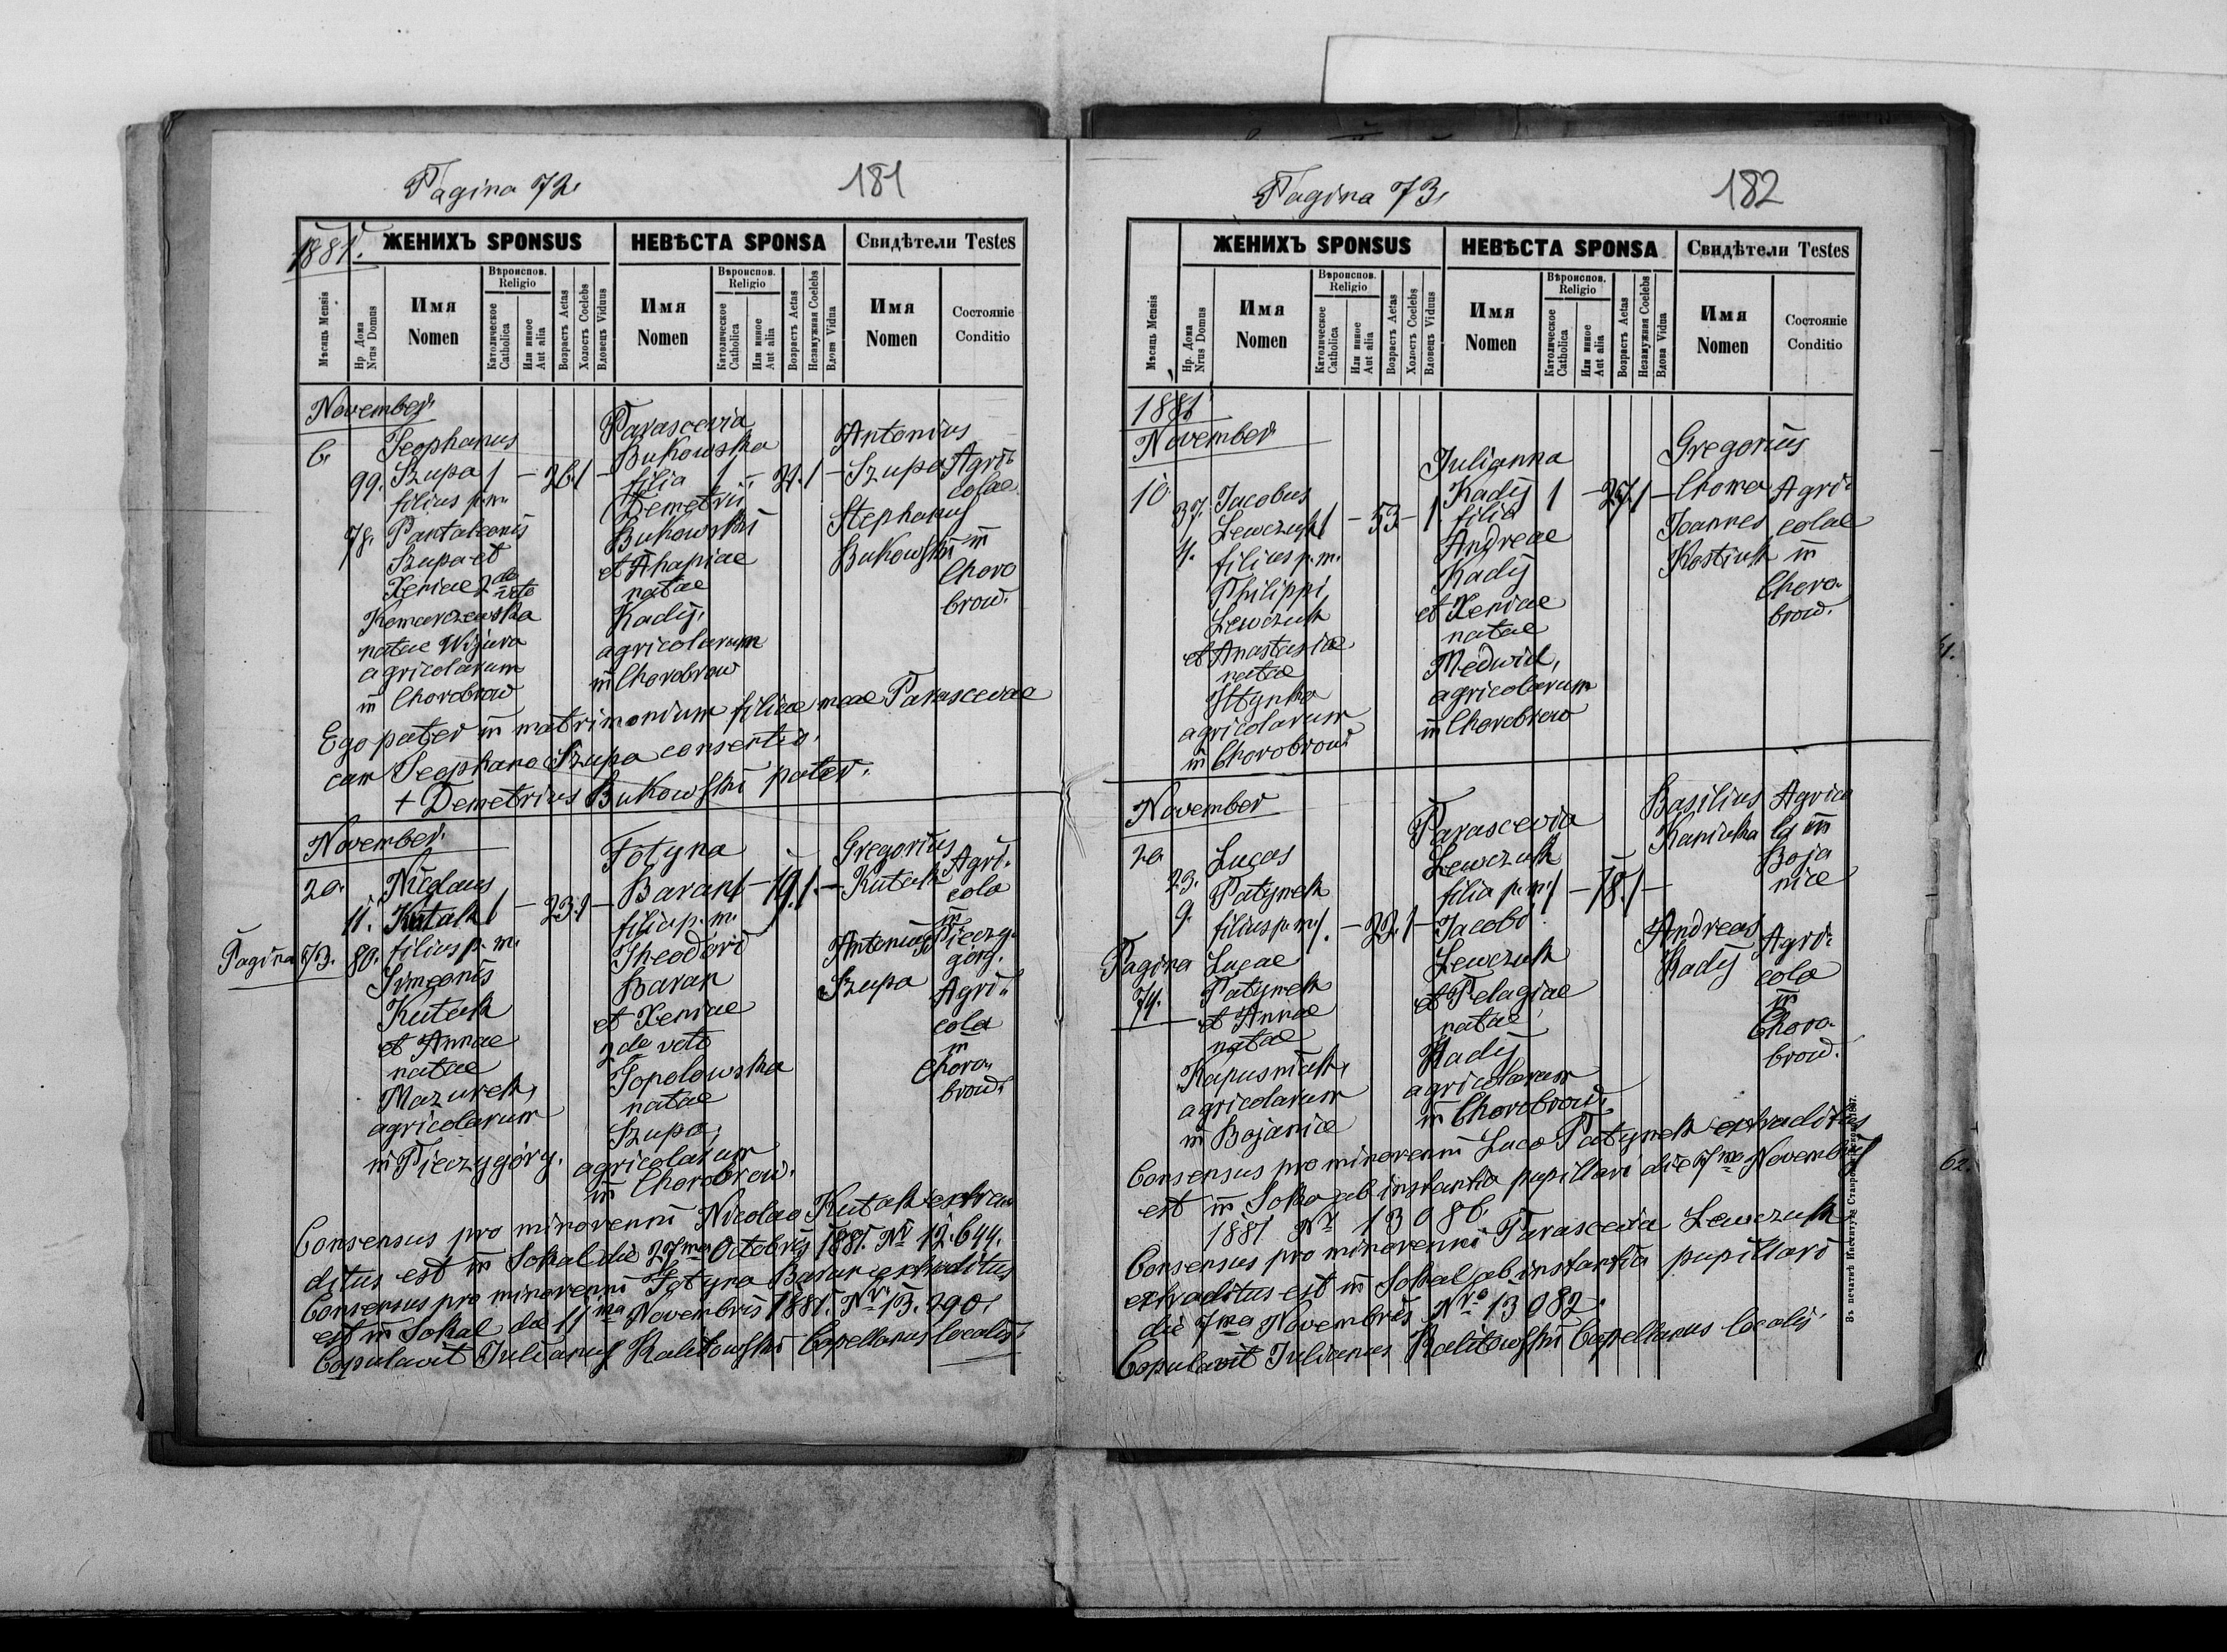 Pagina 72.
181
1881.
ЖЕНИХЪ SPONSUS
НЕВѢСТА SPONSA
Свидѣтели Testes
Мѣсяць Mensis
Нр. Дома Nrus Domus
Имя
Nomen
Вѣроиспов.
Religio
Католическое Catholica
Или иное Aut alia
Возрастъ Aetas
Холостъ Coelebs
Вдовецъ Viduus
Имя
Nomen
Вѣроиспов.
Religio
Католическое Catholica
Или иное Aut alia
Возрастъ Aetas
Незамужная Coelebs
Вдова Vidua
Имя
Nomen
Состояніе
Conditio
November
6.
99.
78.
Teophanus
Szupa 1 - 26 1 -
filius p.m.
Pantaleonis
Szupa et
Xeniae 2do voto
Komarczewska
natae Wijura
agricolarum
in Chorobrow
Parascevia
Bukowska
filia 1 - 21. 1 -
Demetrii
Bukowski
et Ahapiae
natae
Kadij,
agricolarum
in Chorobrow
Antonius
Szupa
Stephanus
Bukowski
Agri-
colae
in
Choro
brow.
Ego pater in matrimonium filiae meae Parasceviae
cum Teophano Szupa consentio.
+ Demetrius Bukowski pater.
November.
20.
11.
80.
Pagina 73.
Nicolaus
Kutak 1 - 23. 1 -
filius p. m.
Simeonis
Kutak
et Annae
natae
Mazurek,
agricolarum
in Pieczygóry.
Fotyna
Baran 1 - 19. 1. -
filia p. m.
Theodori
Baran
et Xeniae
2do voto
Topolowska
natae
Szupa,
agricolarum
in Chorobrow.
Gregorius
Kutak
Antonius
Szupa
Agri-
cola
in
Pieczy-
góry.
Agri-
cola
in
Choro-
brow.
Consensus pro minorenni Nicolao Kutak extra
ditus est in Sokal die 27ma Octobris 1881. Nr 12.644.
Consensus pro minorenni Fotyna Baran extraditus
est in Sokal die 11ma Novembris 1881. Nr 13.290.
Copulavit Julianus Kalitowski Capellanus localis.
Pagina 73.
182
ЖЕНИХЪ SPONSUS
НЕВѢСТА SPONSA
Свидѣтели Testes
Мѣсяць Mensis
Нр. Дома Nrus Domus
Имя
Nomen
Вѣроиспов.
Religio
Католическое Catholica
Или иное Aut alia
Возрастъ Aetas
Холостъ Coelebs
Вдовецъ Viduus
Имя
Nomen
Вѣроиспов.
Religio
Католическое Catholica
Или иное Aut alia
Возрастъ Aetas
Незамужная Coelebs
Вдова Vidua
Имя
Nomen
Состояніе
Conditio
1881
November
10
37.
4.
Jacobus
Lewczuk 1 - 53 - 1
filius p. m.
Philippi
Lewczuk
et Anastasiae
natae
agricolarum
in Chorobrow
Julianna
Kadij 1 - 27. 1 -
filia
Andreae
Kadij
et Xeniae
natae
Medwid,
agricolarum
in Chorobrow
Gregorius
Choma
Joannes
Kostiuk
Agri-
colae
in
Choro-
brow.
November
20
23.
9.
Pagina
74.
Lucas
Patynek
filius p.m. 1. - 22. 1 -
Lucae
Patynek
et Annae
natae
Kapusniak,
agricolarum
in Bojanice
Parascevia
Lewczuk
filia p. m. 1 - 18. 1 -
Jacobi
Lewczuk
et Pelagiae
natae
Kadij
agricolarum
in Chorobrow.
Basilius
Kaniuka
Andreas
Kadij
Agrico
la in
Boja
nice
Agri-
cola
in
Choro-
brow.
Consensus pro minorenni Luca Patynek extraditus
est in Sokal ab instantia pupillari die 7ma Novembris
1881 Nr 13086.
Consensus pro minorenni Parascevia Lewczuk
extraditus est in Sokal ab instantia pupillari
die 7ma Novembris Nro 13082.
Copulavit Julianus Kalitowski Capellanus localis.
62.